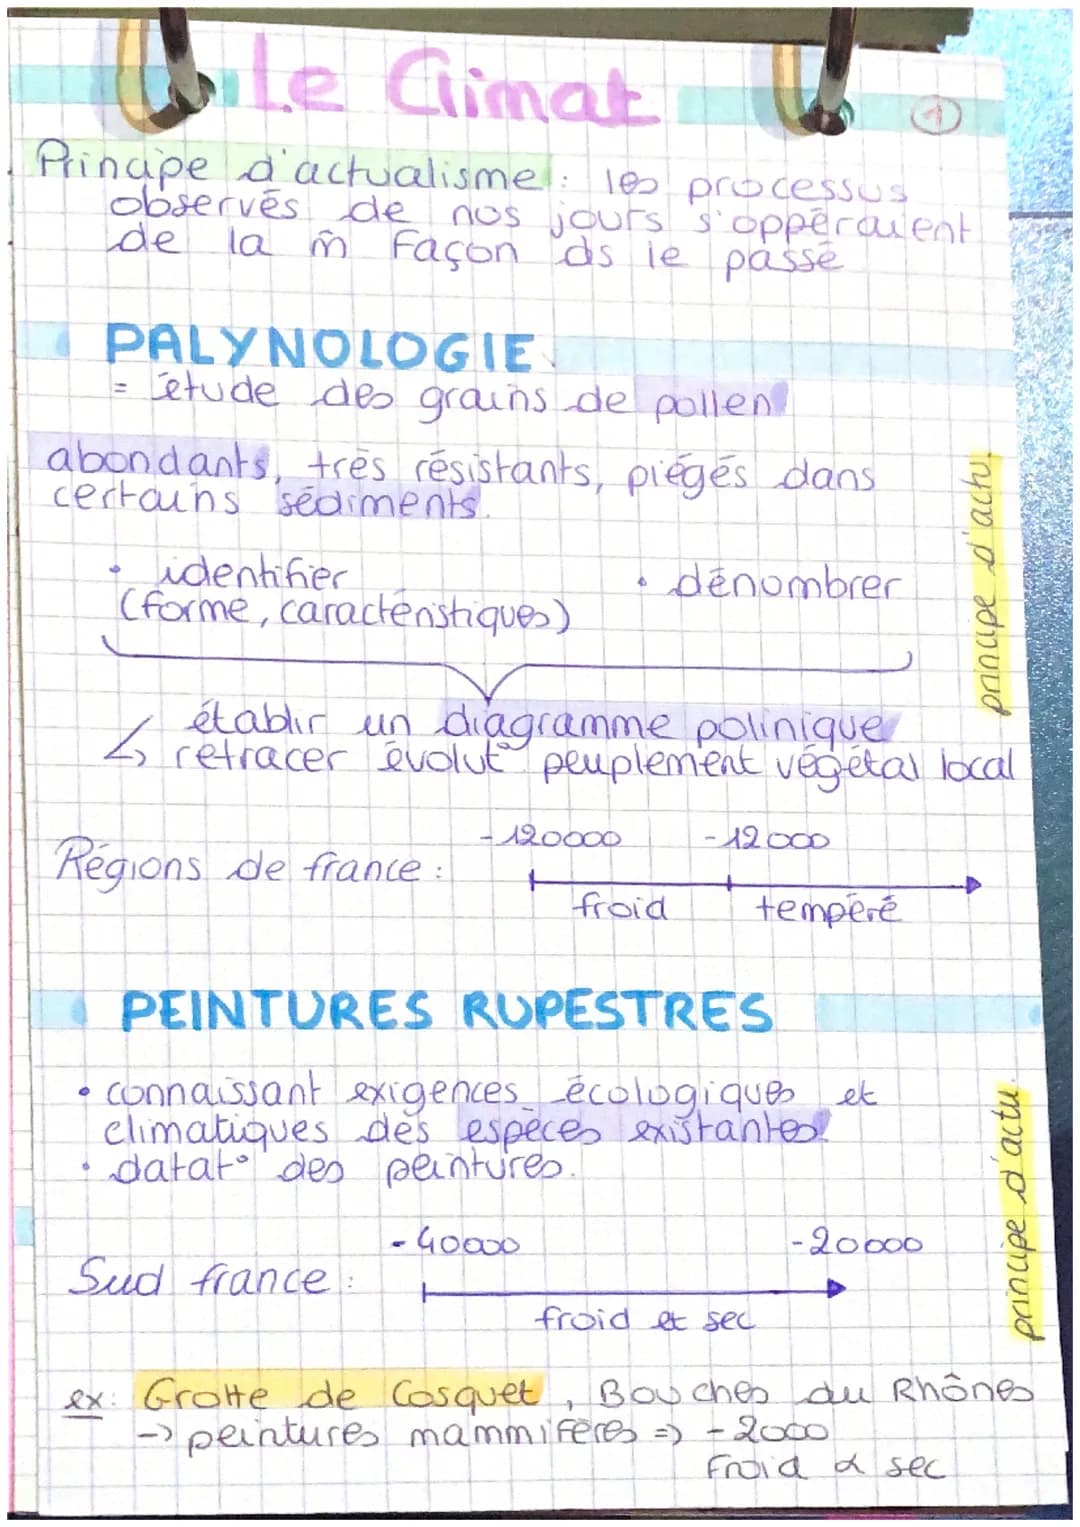 Le Climat
1
Principe d'actualisme : les processus
observés de nos jours s'oppéraient
de la m̂ façon ds le passé
PALYNOLOGIE
= étude des grains de pollen
abondants, très résistants, piégés dans
certains sédiments.
• identifier
• dénombrer
(forme, caractéristiques)
principe d'actu.
établir un diagramme polinique
↳ retracer évolut° peuplement végétal local
-120000 -12000
Régions de france :
froid tempéré
PEINTURES RUPESTRES
• connaissant exigences écologiques et
climatiques des espèces existantes.
• datat° des peintures.
principe d'actu.
-40000 -20000
Sud france :
froid et sec
ex : Grotte de Cosquet, Bouches du Rhônes
-> peintures mammifères => -2000
Froid & sec